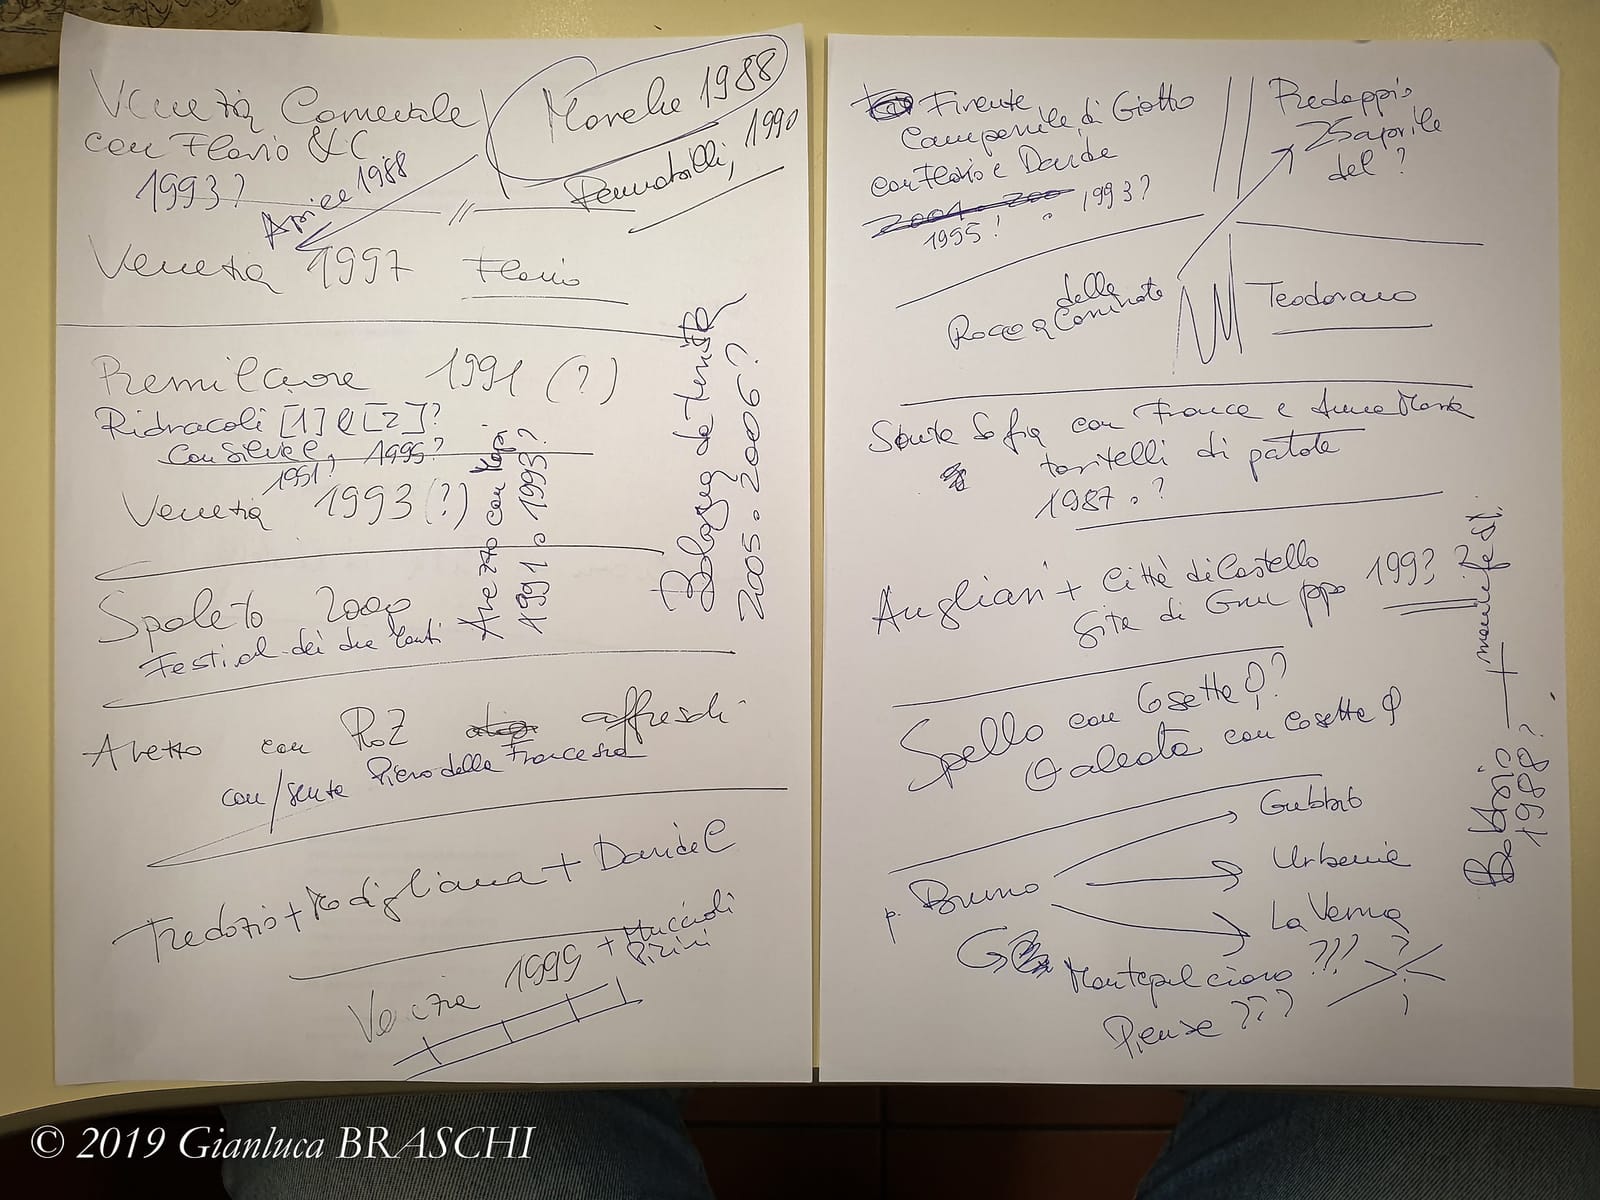 Venezia Carnevale
con Flavio & C
1993?
Marche 1988
Pennabilli, 1990
Aprile 1988
Venezia 1997 Flavio
Premilcuore 1991 (?)
Ridracoli [1] e [2]?
con Silver, 1995?
1991?
Venezia 1993 (?)
Arezzo con
1991 o 1993?
Bologna da Turista
2005. 2006?
Spoleto 2000
Festival dei due Monti
Arezzo con RoZ affreschi
con/senza Piero della Francesca
Tredozio + Modigliana + Daniel
Venezia 1999 + Muccioli
Pirini
Firenze
Campanile di Giotto
con Flavio e Davide
1993?
1995!
Predappio
25 aprile
del ?
Rocca delle Caminate
Teodorano
Santa Sofia con Franca e Anna Maria
tortelli di patate
1987. ?
Anghiari + Città di Castello
gita di Gruppo 1993?
Spello con Cosetta ?
Galeata con Cosetta
p. Bruno
Gubbio
Urbania
La Verna
Montepulciano ???
Pienza ???
?
Bobbio + manifest.
1988?
© 2019 Gianluca BRASCHI